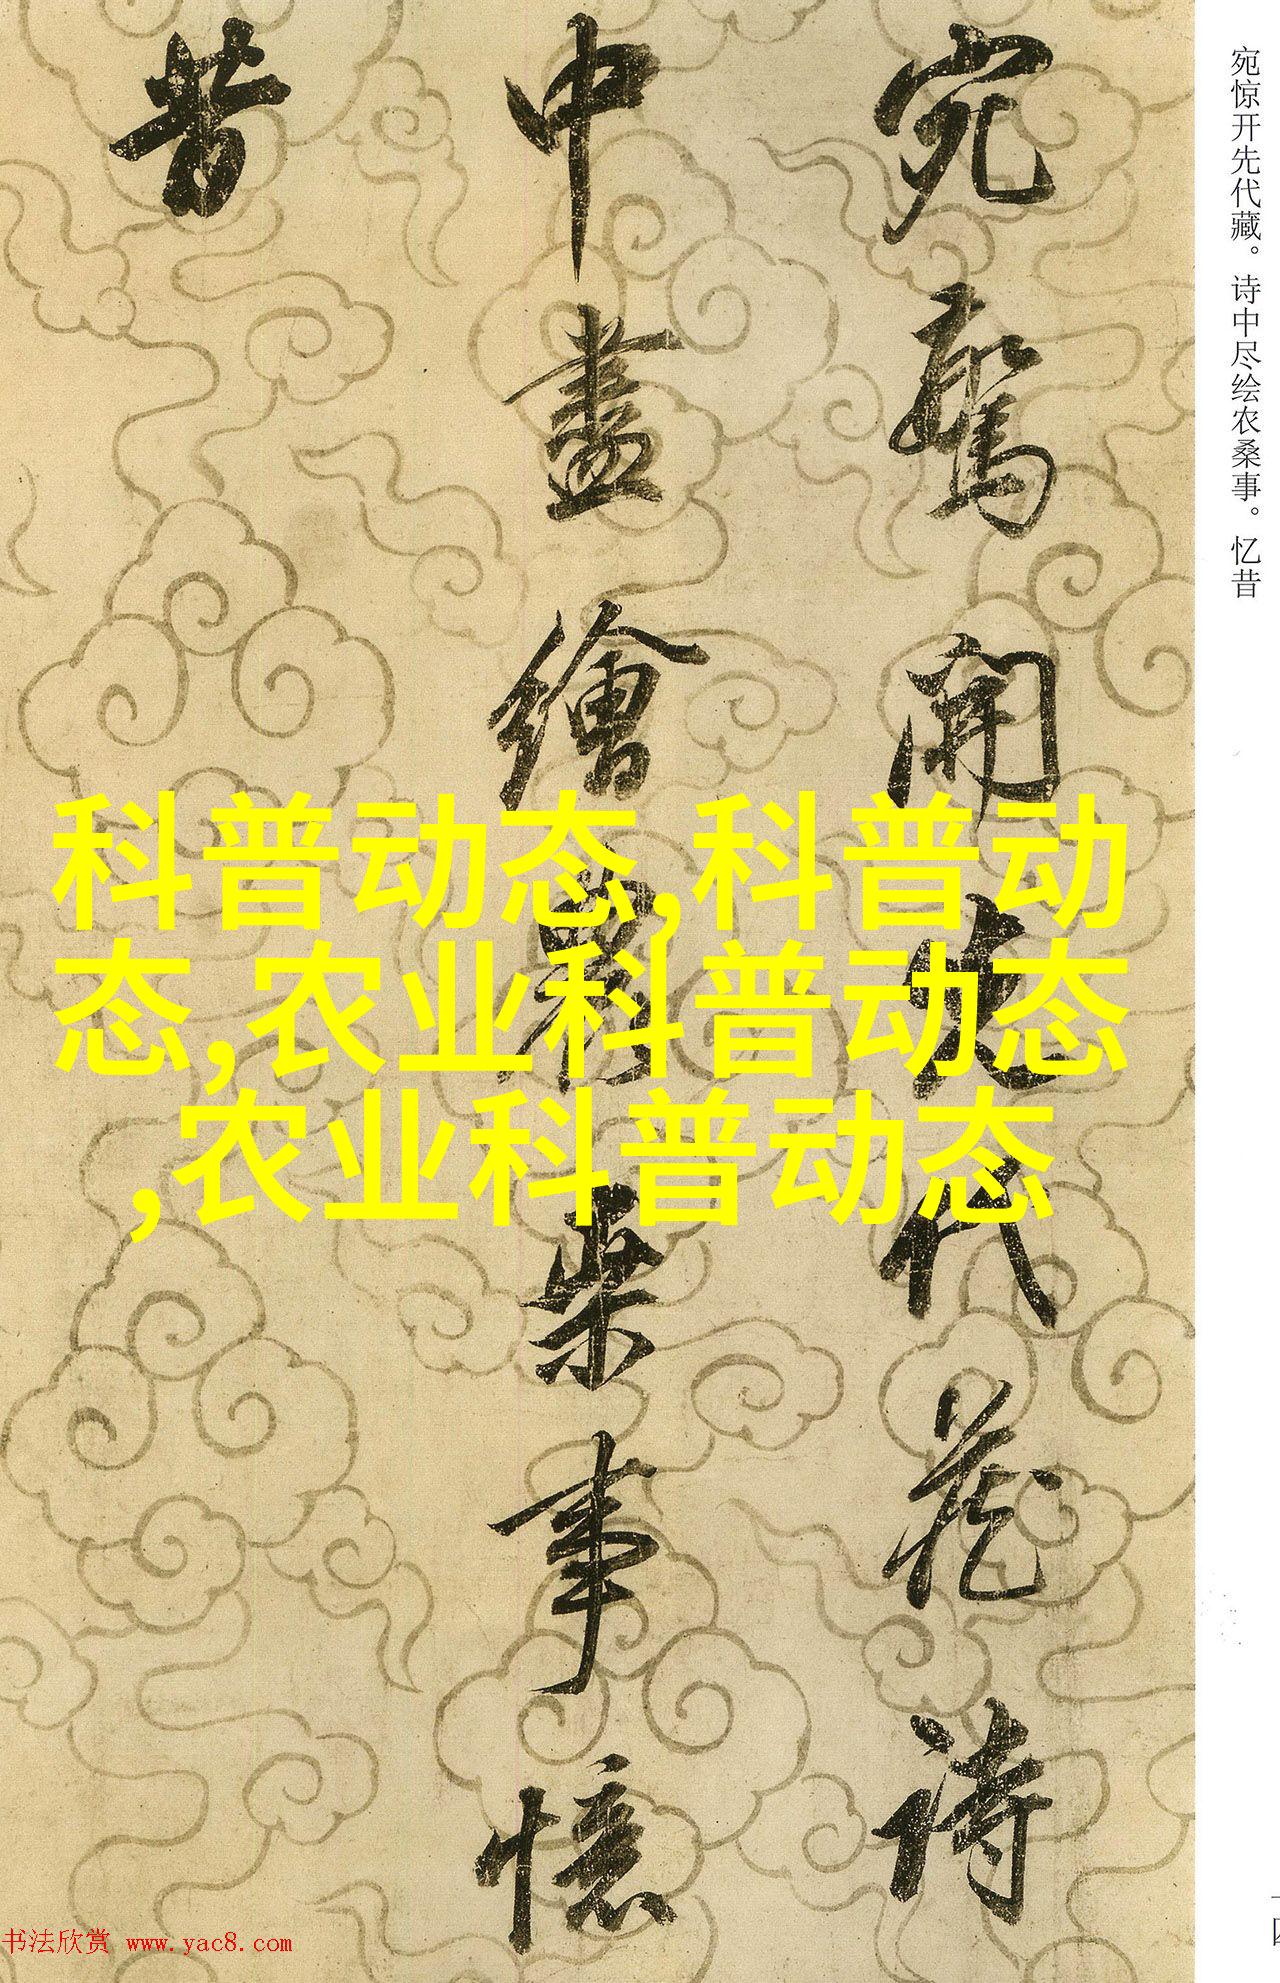 宛驚開先代藏詩
中盡繪農桒事憶
昔
宛惊开先代藏。诗中尽绘农桑事。忆昔
科普动态,科普动
态,农业科普动态
,农业科普动态
书法欣赏 www.yac8.com